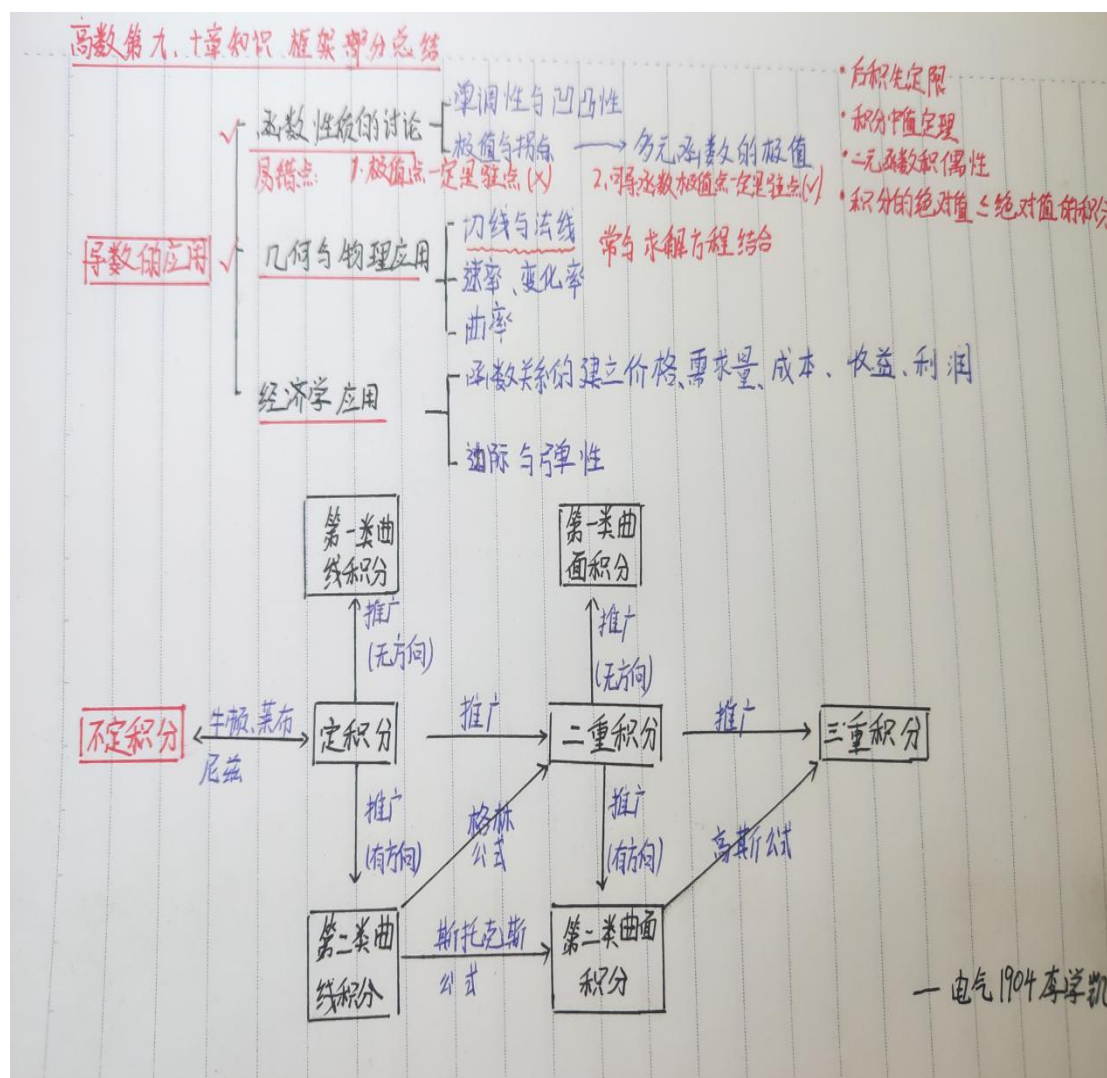 高数第九、十章知识 框架部分总结
• 后积先定限
• 积分中值定理
• 二元函数积偶性
• 积分的绝对值 ≤ 绝对值的积分
导数的应用
√ 函数性质的讨论
单调性与凹凸性
极值与拐点 → 多元函数的极值
易错点: 1. 极值点一定是驻点(×) 2. 可导函数极值点一定是驻点(√)
√ 几何与物理应用
切线与法线 常与求解方程结合
速率、变化率
曲率
经济学应用
函数关系的建立价格、需求量、成本、收益、利润
边际与弹性
第一类曲
线积分
第一类曲
面积分
推广
(无方向)
推广
(无方向)
不定积分
牛顿、莱布
尼兹
定积分
推广
二重积分
推广
三重积分
推广
(有方向)
格林
公式
推广
(有方向)
高斯公式
第二类曲
线积分
斯托克斯
公式
第二类曲面
积分
— 电气1904 李学凯